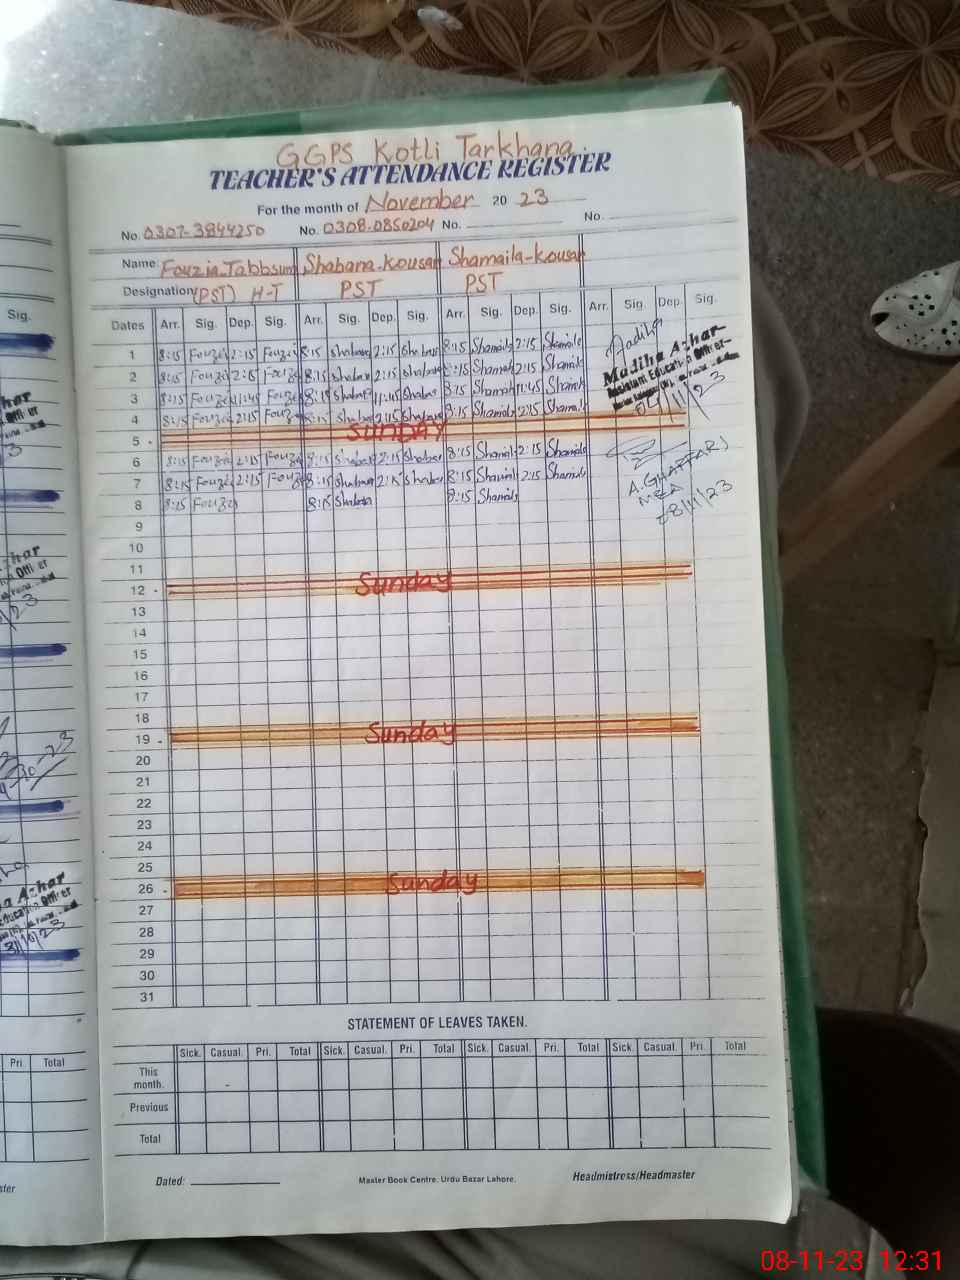 GGPS Kotli Tarkhana
TEACHER'S ATTENDANCE REGISTER
For the month of November 2023
No. 0307-3844250 No. 0308-0850204 No. No.
Name: Fouzia Tabbsum Shabana Kousar Shamaila-Kousar
Designation (PST) H-T PST PST
Dates Arr. Sig. Dep. Sig. Arr. Sig. Dep. Sig. Arr. Sig. Dep. Sig. Arr. Sig. Dep. Sig.
1 8:15 Fouzia 2:15 Fouzia 8:15 Shabana 2:15 Shabana 8:15 Shamaila 2:15 Shamaila
2 8:15 Fouzia 2:15 Fouzia 8:15 Shabana 2:15 Shabana 8:15 Shamaila 2:15 Shamaila
3 8:15 Fouzia 11:45 Fouzia 8:15 Shabana 11:45 Shabana 8:15 Shamaila 11:45 Shamaila
4 8:15 Fouzia 2:15 Fouzia 8:15 Shabana 2:15 Shabana 8:15 Shamaila 2:15 Shamaila
Madiha Azhar
Assistant Education Officer
04/11/23
5 SUNDAY
6 8:15 Fouzia 2:15 Fouzia 8:15 Shabana 2:15 Shabana 8:15 Shamaila 2:15 Shamaila
7 8:15 Fouzia 2:15 Fouzia 8:15 Shabana 2:15 Shabana 8:15 Shamaila 2:15 Shamaila
8 8:15 Fouzia 8:15 Shabana 8:15 Shamaila
A.GHAFFAR)
MEA
08/11/23
9
10
11
12 Sunday
13
14
15
16
17
18
19 Sunday
20
21
22
23
24
25
26 Sunday
27
28
29
30
31
STATEMENT OF LEAVES TAKEN.
Sick. Casual. Pri. Total Sick. Casual. Pri. Total Sick. Casual. Pri. Total Sick. Casual. Pri. Total
This month.
Previous
Total
Dated: Master Book Centre, Urdu Bazar Lahore. Headmistress/Headmaster
Sig.
Pri. Total
08-11-23 12:31